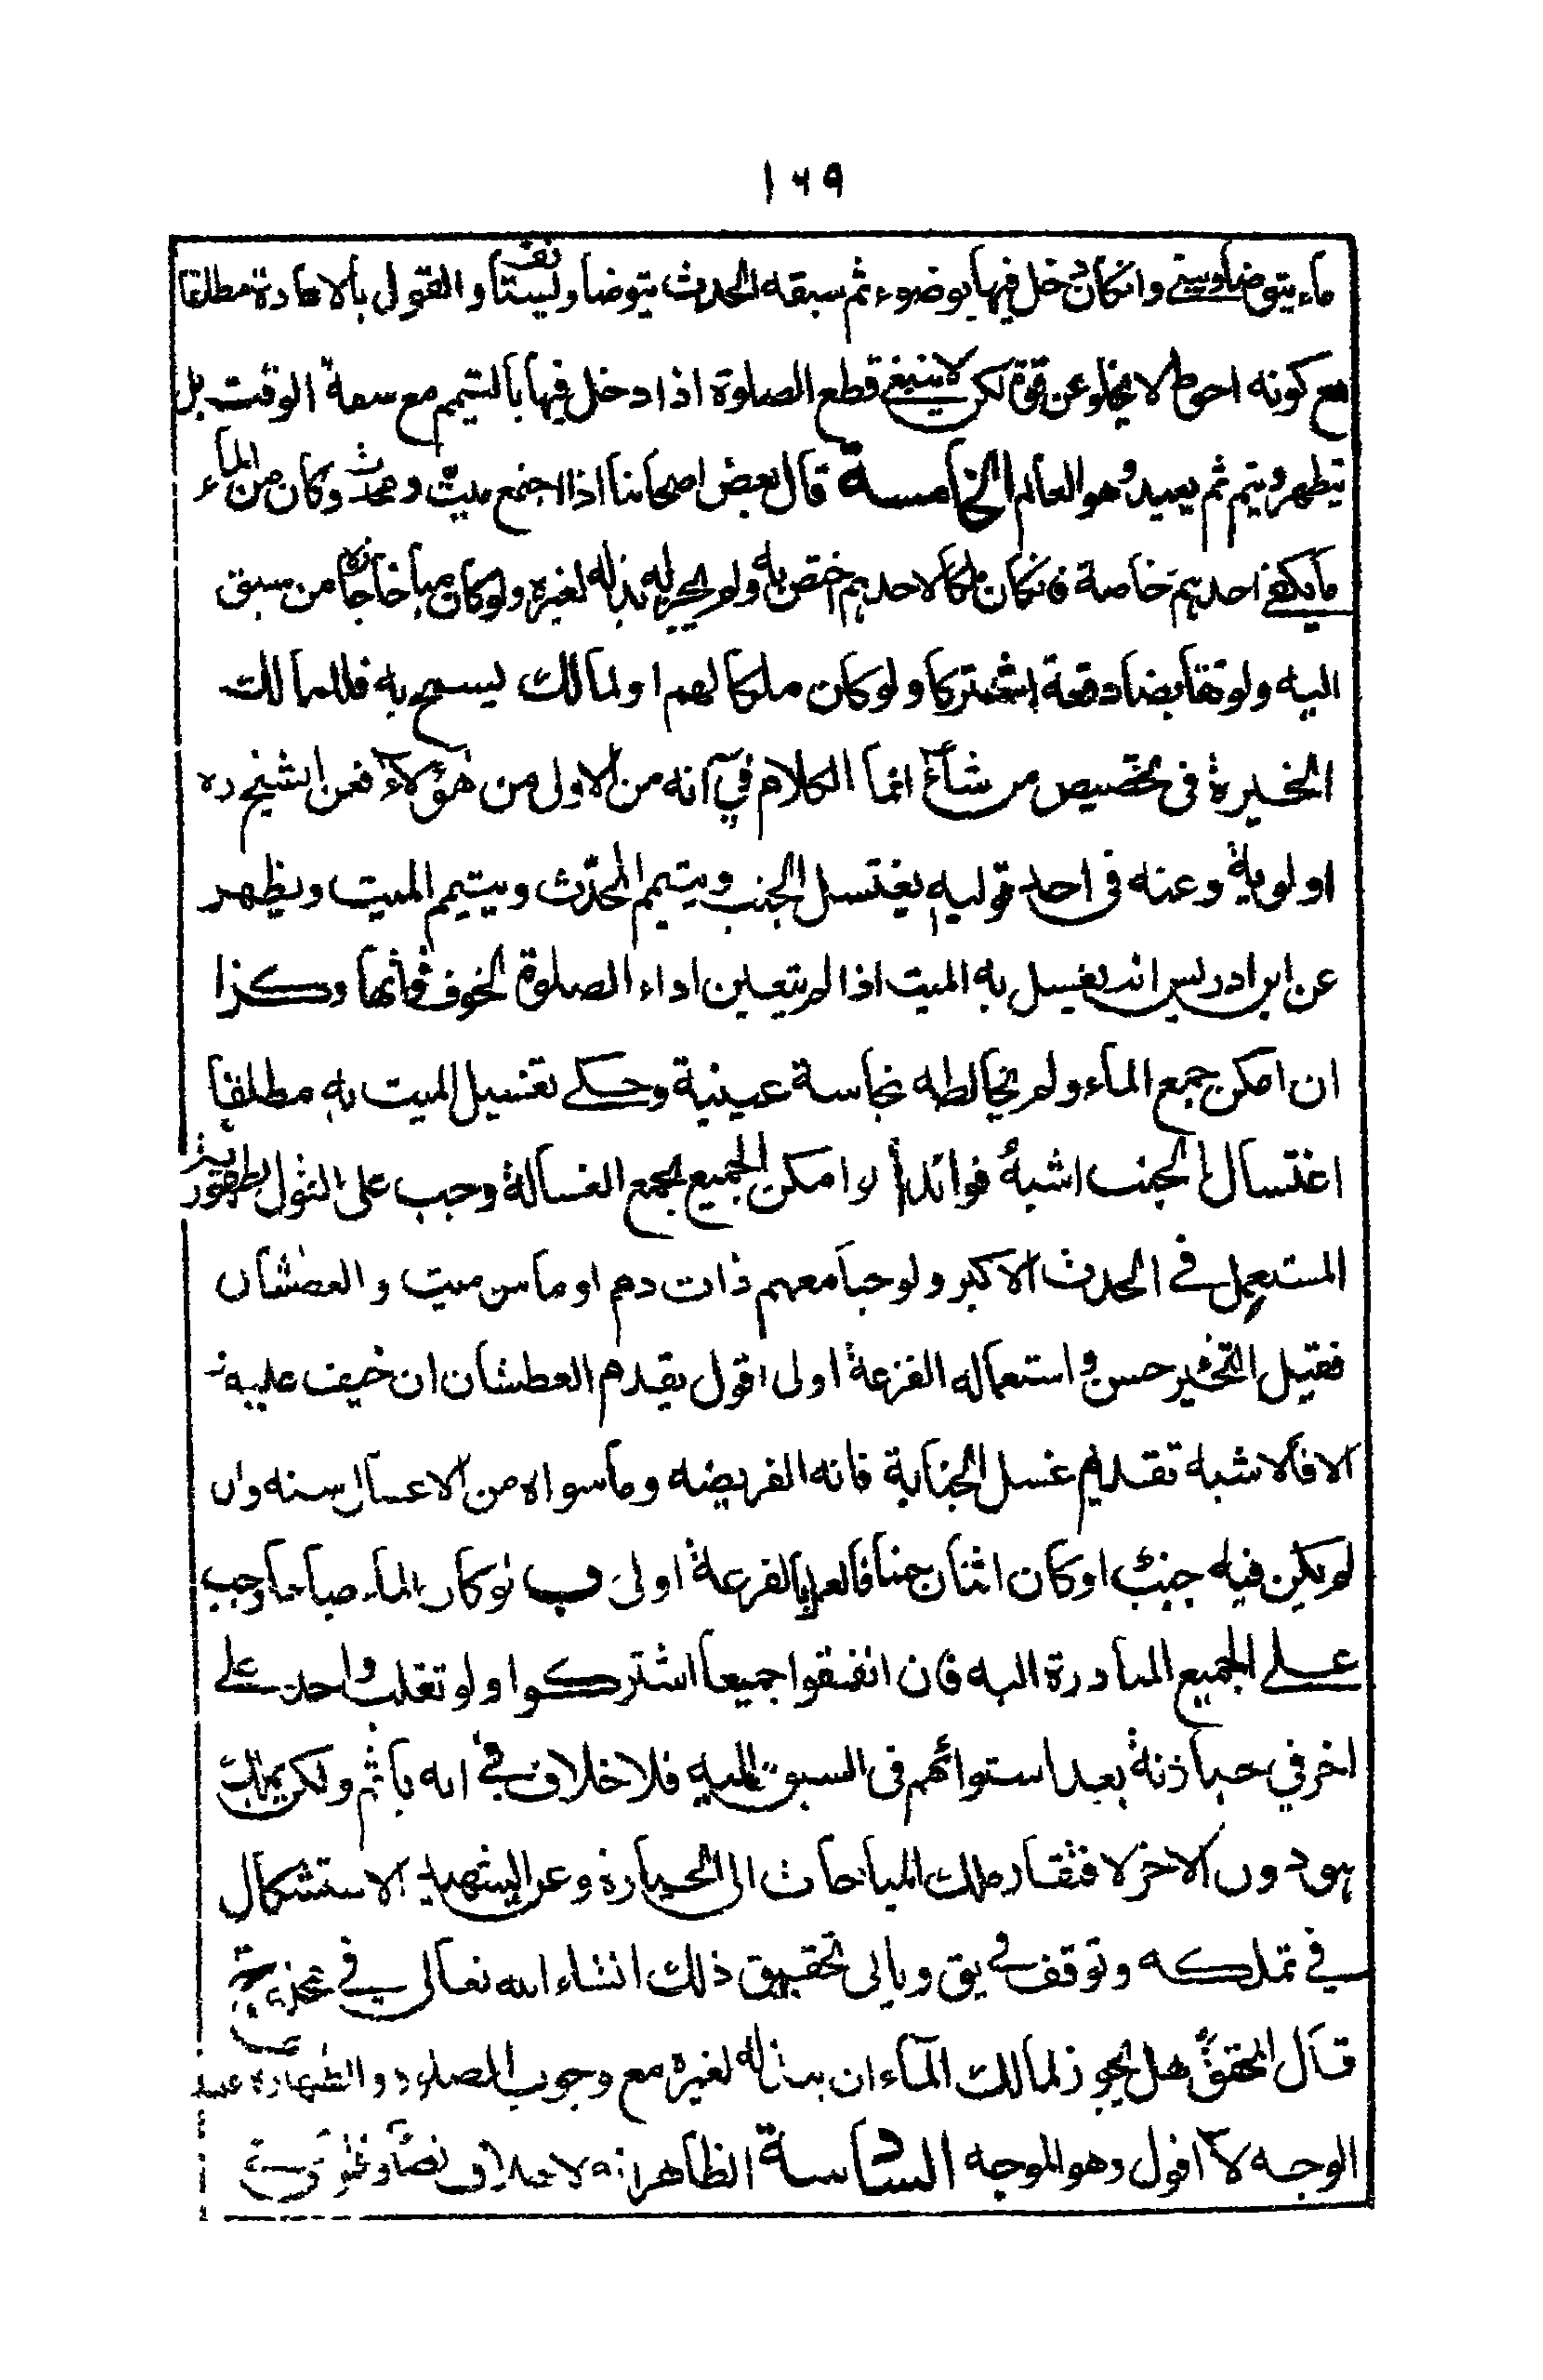 ١٦٩
ماء يتوضأ ويبني وان كان دخل فيها بوضوء ثم سبقه الحدث يتوضأ وليستأنف والقول بالاعادة مطلقا
مع كونه احوط لا يخلو عن قوة لكن لا ينبغي قطع الصلوة اذا دخل فيها بالتيمم مع سعة الوقت بل
يتطهر ويتم ثم يعيد وهو العالم الخامسة قال بعض اصحابنا اذا اجتمع ميت ومحدث وكان من الماء
ما يكفي احدهم خاصة فان كان ملكا لاحدهم اختص به ولم يجز له بذله لغيره ولو كان مباحا جاز من سبق
اليه ولو تقابضا دفعة اشتركا ولو كان ملكا لهم او لمالك يسمح به فللمالك
الخيرة في تخصيص من شاء انما الكلام في انه من الاولى من هؤلاء فعن الشيخ ره
اولوية وعنه في احد قوليه يغتسل الجنب ويتيمم المحدث وييتيم الميت ويظهر
عن ابن ادريس انه يغسل به الميت اذا لم يتعين اداء الصلوة لخوف فوتها وكذا
ان امكن جمع الماء ولم يخالطه نجاسة عينية وحكي تغسيل الميت به مطلقا
اغتسال الجنب اشبه فوائد ا لو امكن الجميع بجمع الغسالة وجب على القول بطهورية
المستعمل في الحدث الاكبر ولو جامعهم ذات دم او ماس ميت والعطشان
فقيل التخير حسن واستعماله القرعة اولى اقول يقدم العطشان ان خيف عليه و
الا فالاشبه تقديم غسل الجنابة فانه الفريضه وما سواه من الاغسال سنه وان
لم يكن فيه جنب او كان اثنان جنبا فالعمل بالقرعة اولى ب لو كان الماء مباحا وجب
على الجميع المبادرة اليه فان اتفقوا جميعا اشتركوا ولو تغلب واحد على
اخر في حيازته بعد استوائهم في السبق اليه فلا خلاف في انه ياثم ولكن يملك
هو دون الاخر لافتقار ملك المباحات الى الحيازة وعن الشهيد الاستشكال
في تملكه وتوقف في يق وياتي تحقيق ذلك انشاء الله تعالى في
قال المحقق هل يجوز لمالك الماء ان يبذله لغيره مع وجوب الصلوة والطهارة عليه
الوجه لا اقول وهو الموجه السادسة الظاهر انه لا خلاف نصا وفتوى